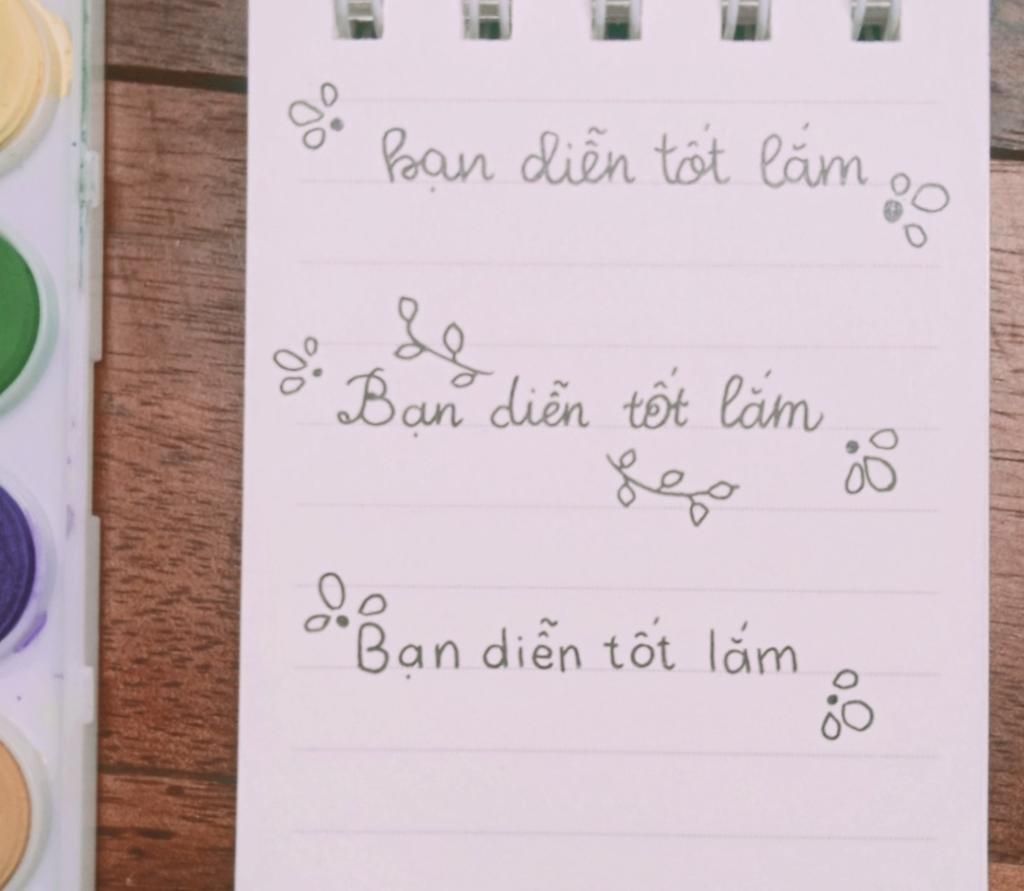 Bạn diễn tốt lắm
Bạn diễn tốt lắm
Bạn diễn tốt lắm